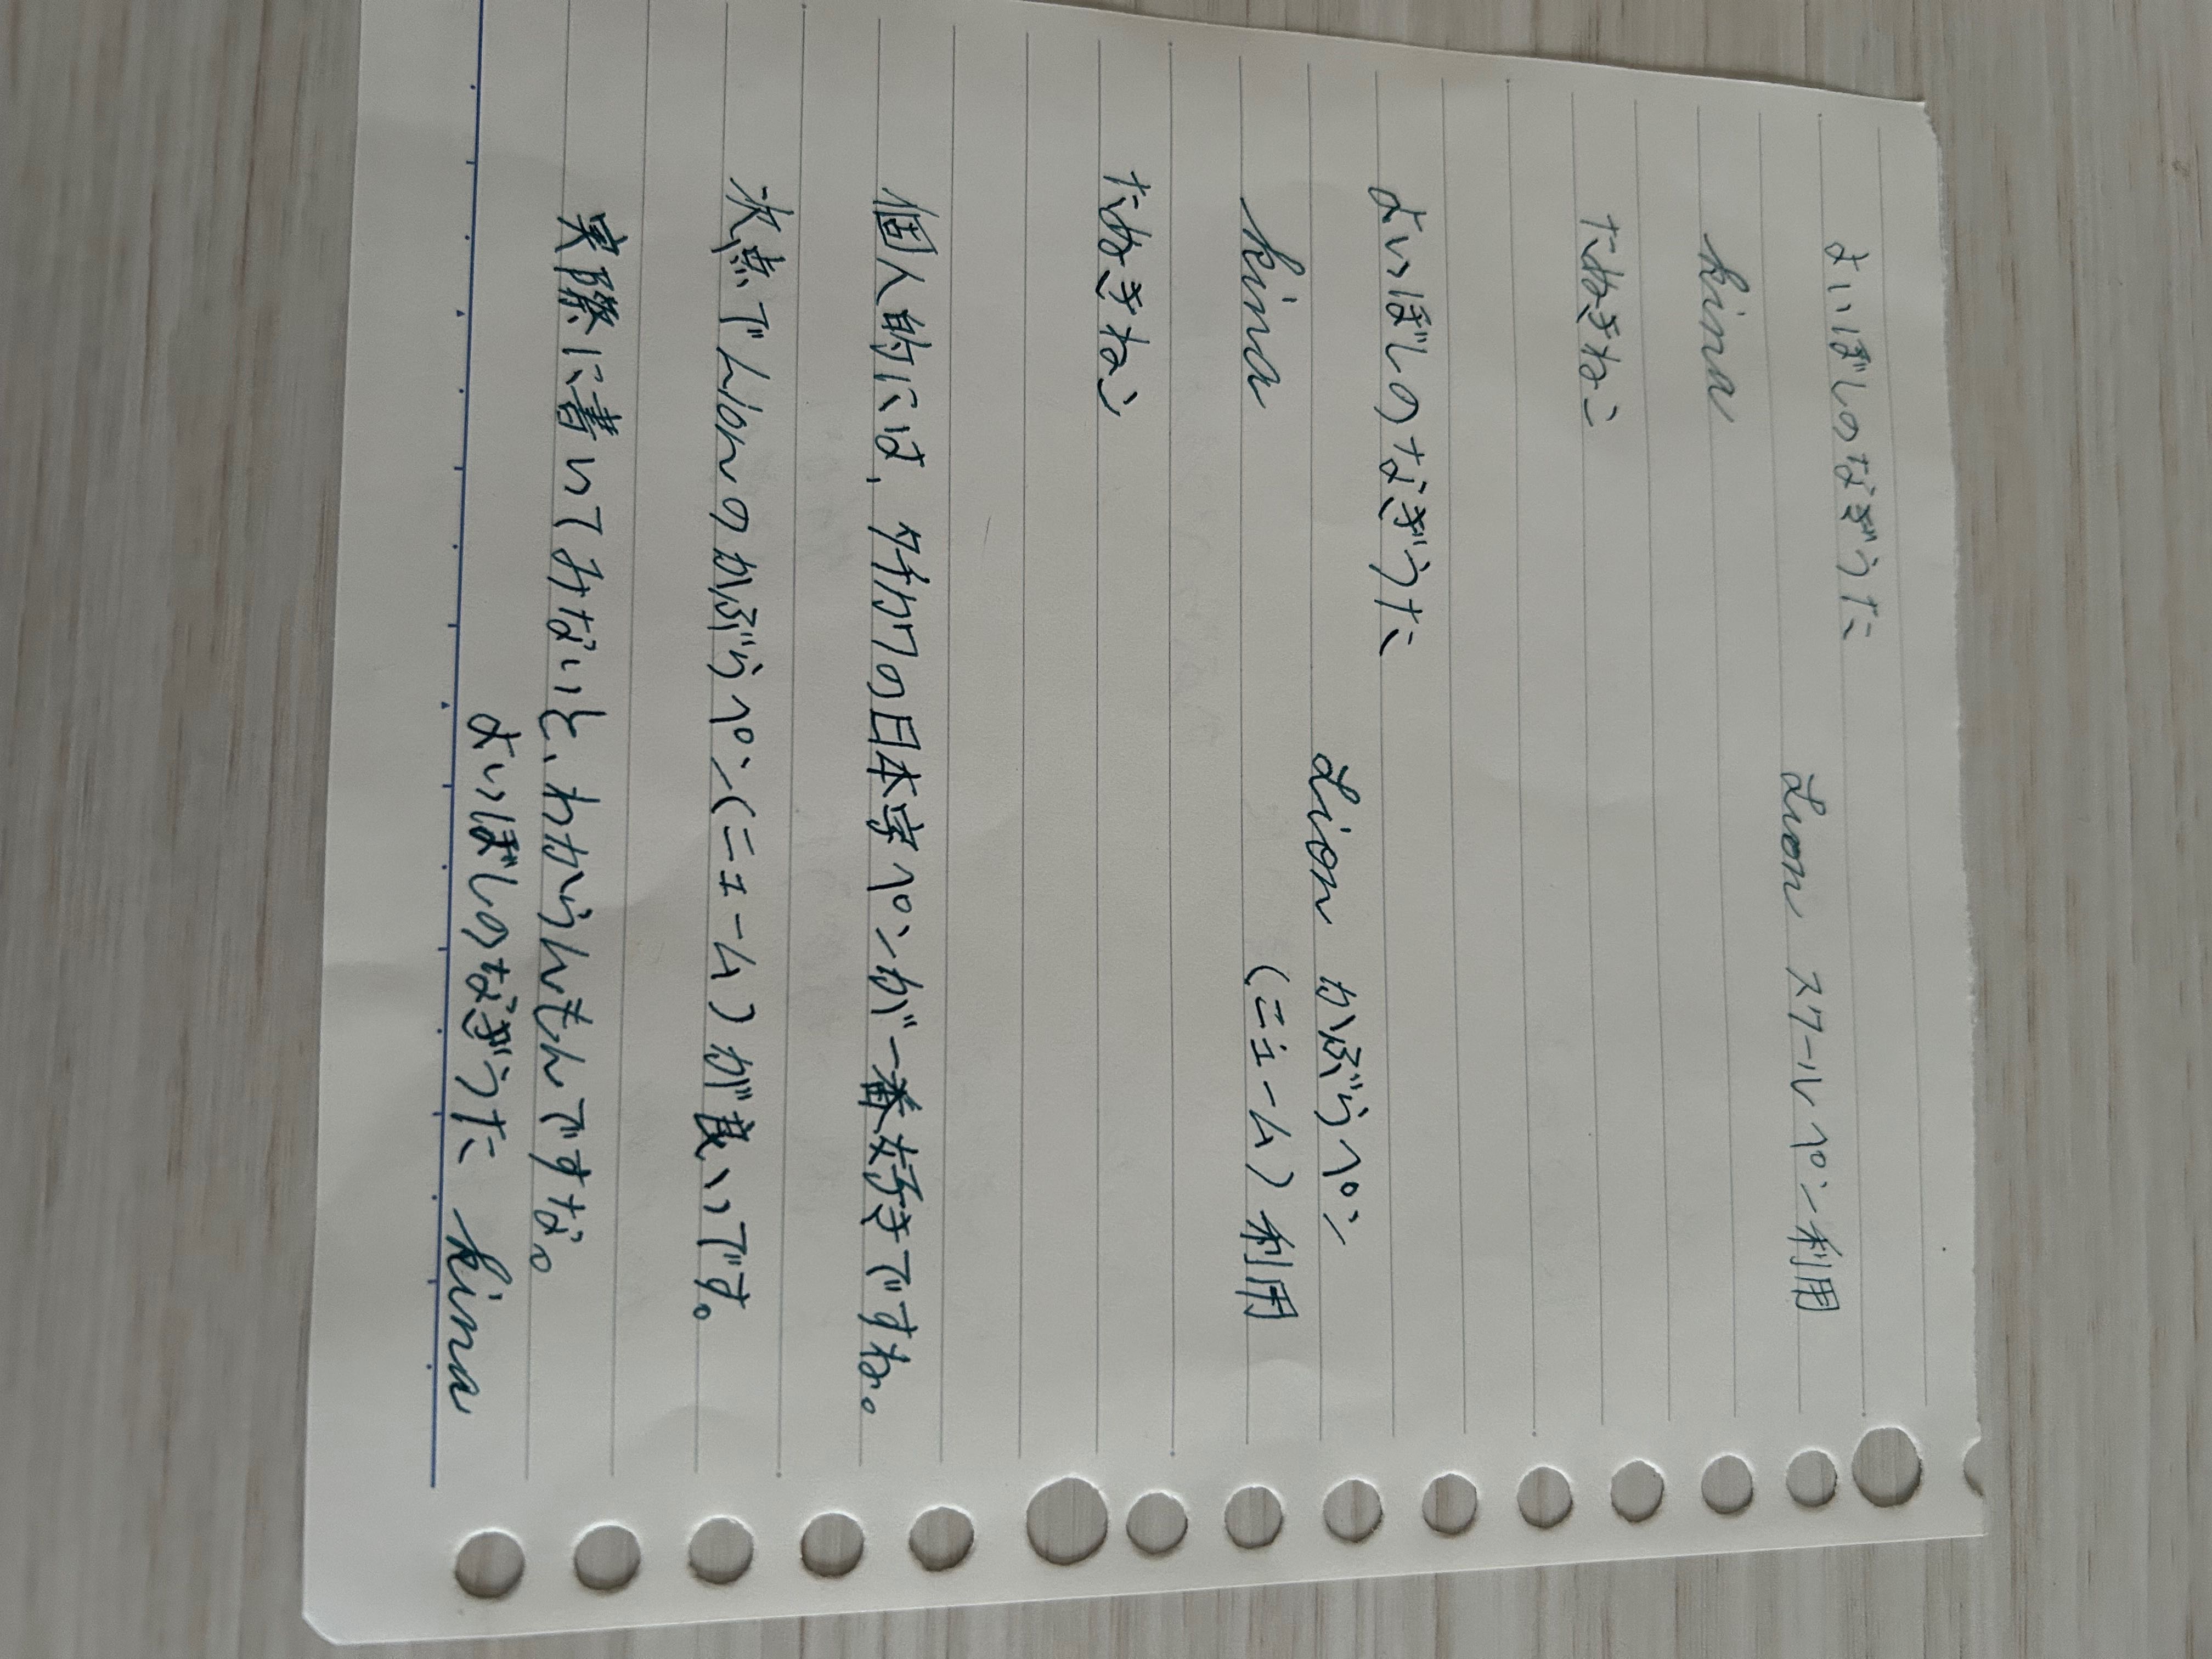 よいぼしのなぎうた
Lion スクールペン利用
kina
たぬきねこ
よいぼしのなぎうた
Lion かぶらペン
kina
(ニューム)利用
たぬきねこ
個人的には、タチカワの日本字ペンが一番好きですね。
次点でLionのかぶらペン(ニューム)が良いです。
実際に書いてみないと、わからんもんですな。
よいぼしのなぎうた kina